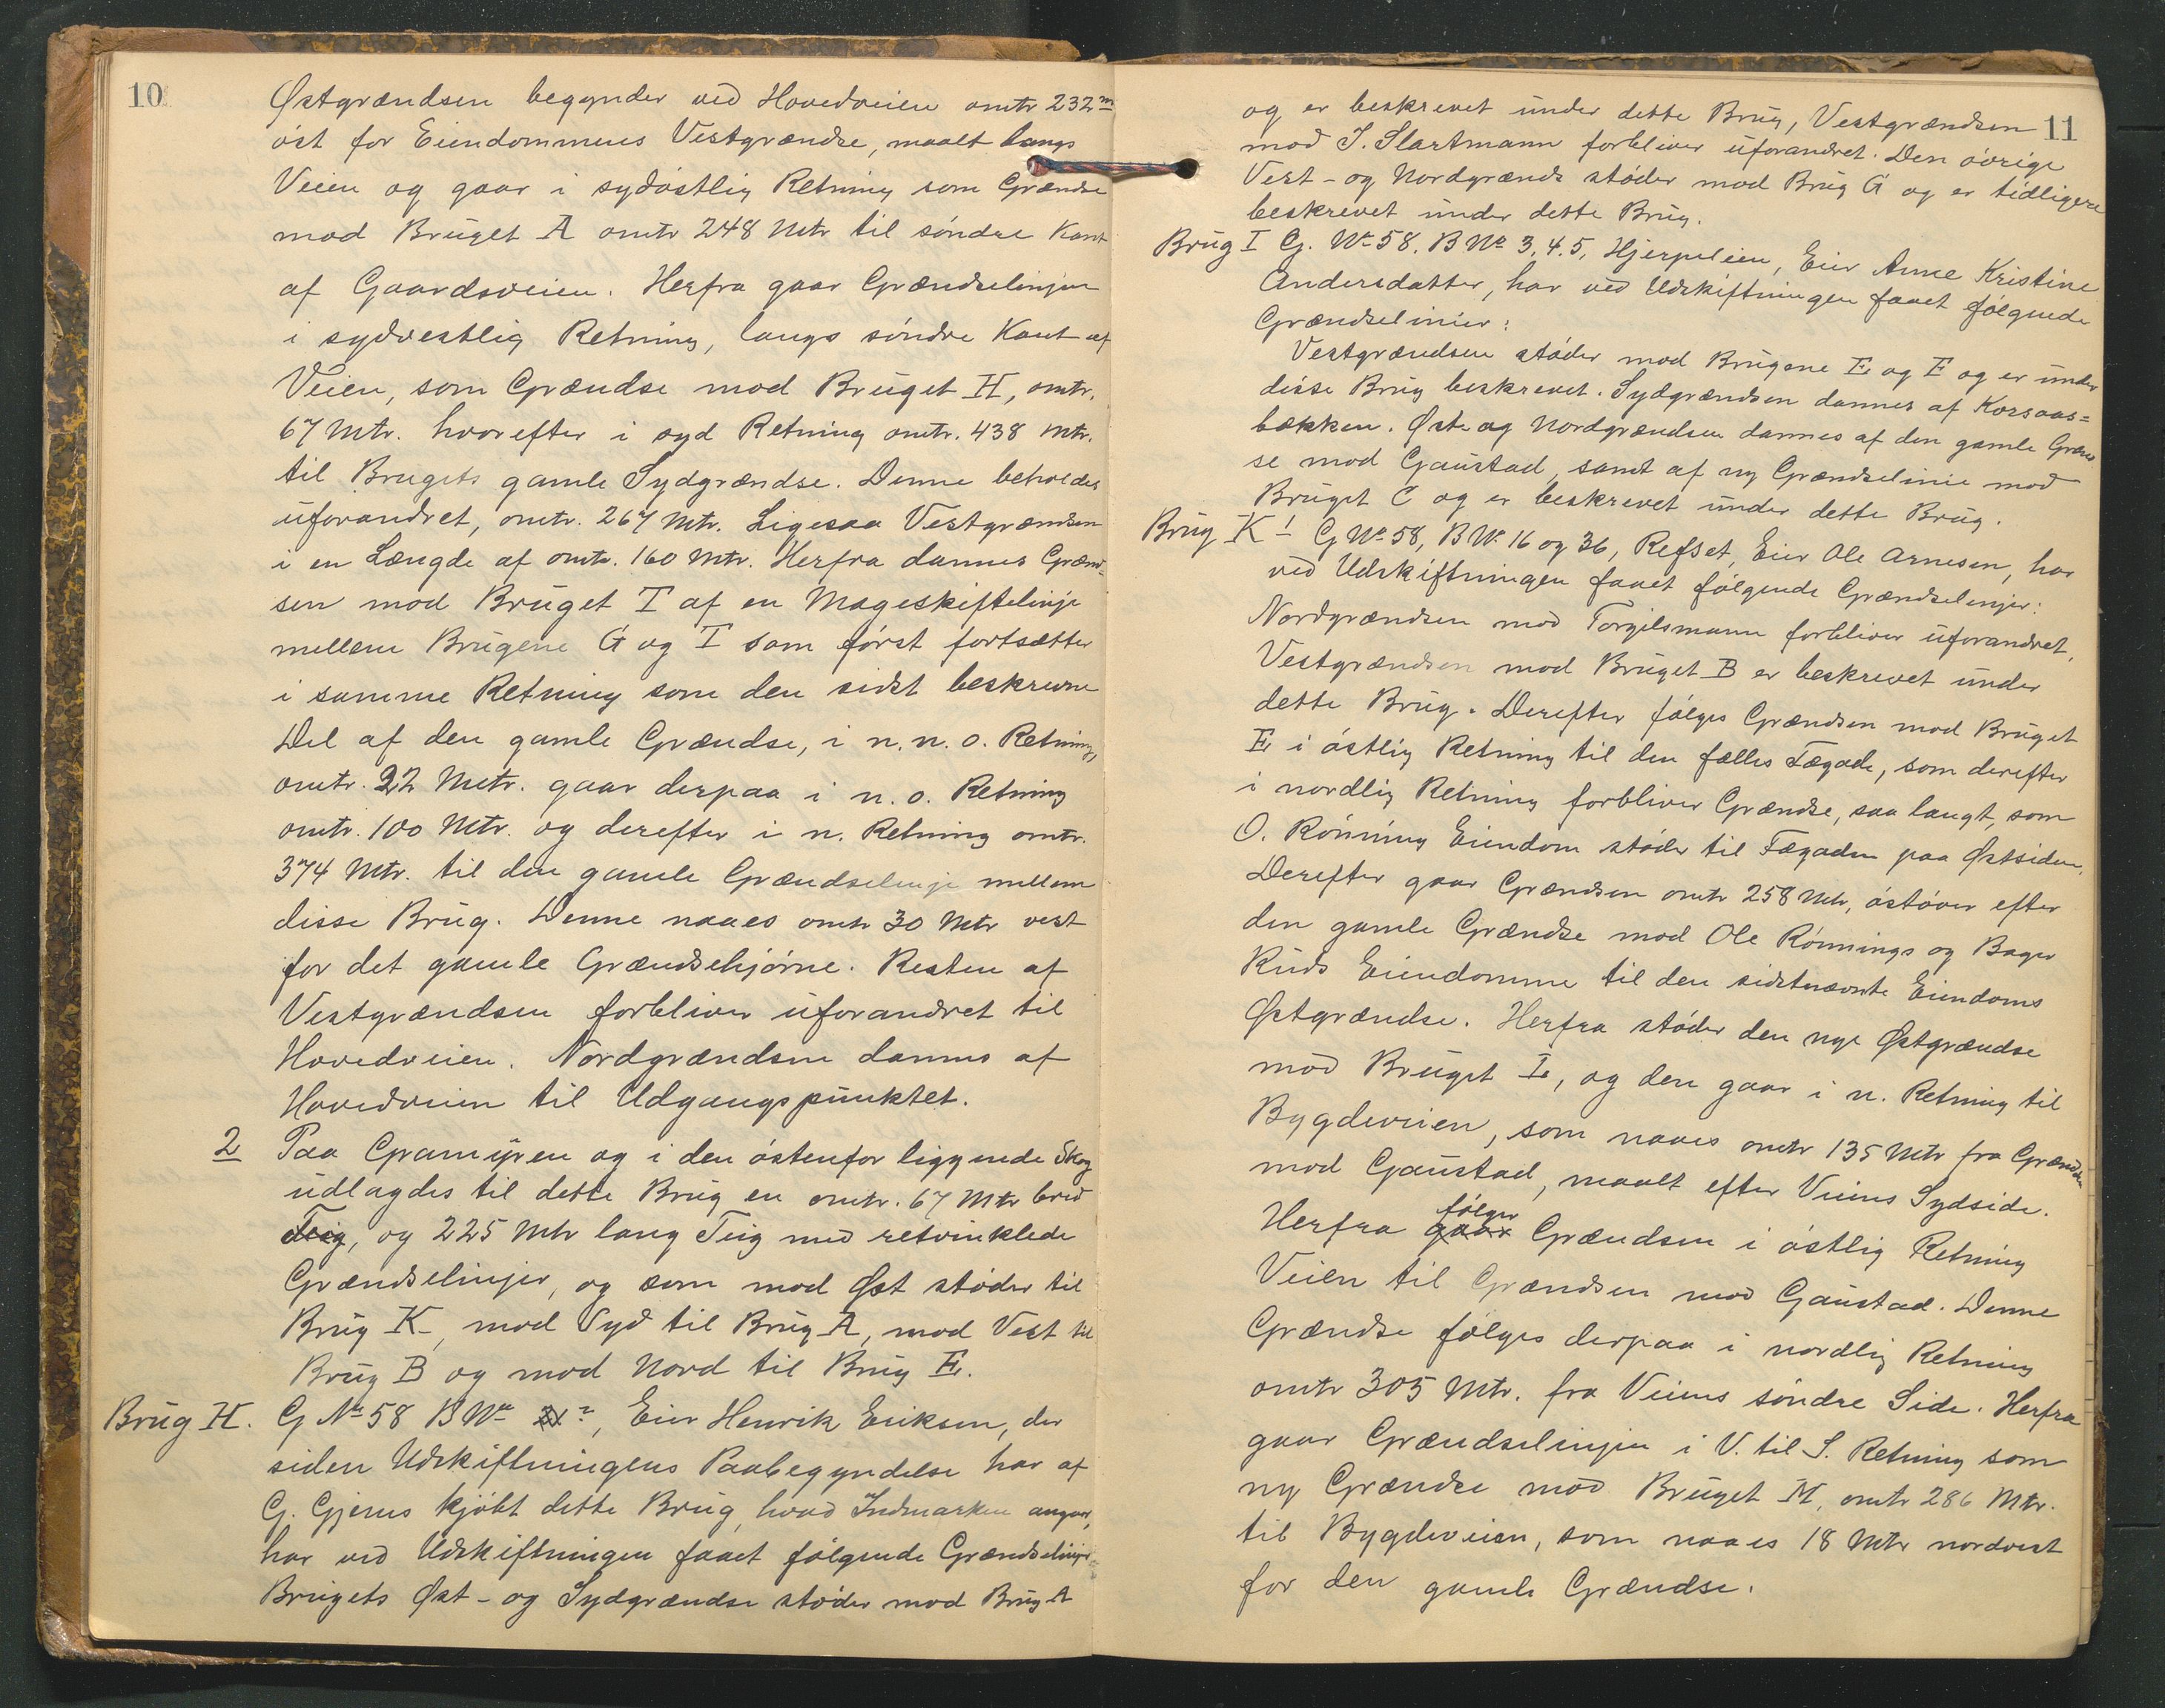 10
Østgrændsen begynder ved Hovedveien omtr 232 m
øst for Eiendommens Vestgrændse, maalt langs
Veien og gaar i sydøstlig Retning som Grændse
mod Bruget A omtr 248 Mtr til søndre Kant
af Gaardsveien. Herfra gaar Grændselinjen
i sydvestlig Retning, langs søndre Kant af
Veien, som Grændse mod Bruget H, omtr.
67 Mtr. hvorefter i syd Retning omtr. 438 Mtr.
til Brugets gamle Sydgrændse. Denne beholdes
uforandret, omtr. 267 Mtr. Ligesaa Vestgrændsen
i en Længde af omtr. 160 Mtr. Herfra dannes Grænd-
sen mod Bruget I af en Mageskiftelinje
mellem Brugene G og I som først fortsætter
i samme Retning som den sidst beskrevne
Del af den gamle Grændse, i n. n. o. Retning,
omtr. 22 Metr. gaar derpaa i n. o. Retning
omtr. 100 Mtr. og derefter i n. Retning omtr.
374 Mtr. til den gamle Grændselinje mellem
disse Brug. Denne naaes omtr 30 Mtr vest
for det gamle Grændsehjørne. Resten af
Vestgrændsen forbliver uforandret til
Hovedveien. Nordgrændsen dannes af
Hovedveien til Udgangspunktet.
2 Paa Gramyren og i den østenfor liggende Skog
udlagdes til dette Brug en omtr. 67 Mtr bred
Teig, og 225 Mtr lang Teig med retvinklede
Grændselinjer, og som mod Øst støder til
Brug K, mod Syd til Brug A, mod Vest til
Brug B og mod Nord til Brug E.
Brug H. G No 58 B No 21?, Eier Henrik Eriksen, der
siden Udskiftningens Paabegyndelse har af
G. Gjerns kjøbt dette Brug, hvad Indmarken angaar,
har ved Udskiftningen faaet følgende Grændselinjer
Brugets Øst- og Sydgrændse støder mod Brug A
11
og er beskrevet under dette Brug, Vestgrændsen
mod I. Slartmann forbliver uforandret. Den øvrige
Vest- og Nordgrændse støder mod Brug G og er tidligere
beskrevet under dette Brug.
Brug I G. No 58. B No 3, 4. 5, Hjerpeleien, Eier Anne Kristine
Andersdatter, har ved Udskiftningen faaet følgende
Grændselinier:
Vestgrændsen støder mod Brugene E og F og er under
disse Brug beskrevet. Sydgrændsen dannes af Korsaas=
bækken. Øst og Nordgrændsen dannes af den gamle Grænd
se mod Gaustad, samt af ny Grændselinie mod
Bruget C og er beskrevet under dette Brug.
Brug K 1 G No 58, B No 16 og 36, Refset, Eier Ole Arnesen, har
ved Udskiftningen faaet følgende Grændselinjer:
Nordgrændsen mod Torgilsmann forbliver uforandret,
Vestgrændsen mod Bruget B er beskrevet under
dette Brug. Derefter følges Grændsen mod Bruget
E i østlig Retning til den fælles Fægade, som derefter
i nordlig Retning forbliver Grændse, saa langt, som
O. Rønning Eiendom støder til Fægaden paa Østsiden.
Derefter gaar Grændsen omtr 258 Mtr, østover efter
den gamle Grændse mod Ole Rønnings og Bager
Ruds Eiendomme til den sidstnævnte Eiendoms
Østgrændse. Herfra støder den nye Østgrændse
mod Bruget L, og den gaar i n. Retning til
Bygdeveien, som naaes omtr 135 Mtr fra Grændsen
mod Gaustad, maalt efter Veiens Sydside.
følger
Herfra gaar Grændsen i østlig Retning
Veien til Grændsen mod Gaustad. Denne
Grændse følges derpaa i nordlig Retning
omtr 305 Mtr. fra Veiens søndre Side. Herfra
gaar Grændselinjen i V. til S. Retning som
ny Grændse mod Bruget M, omtr 286 Mtr.
til Bygdeveien, som naaes 18 Mtr nordvest
for den gamle Grændse.